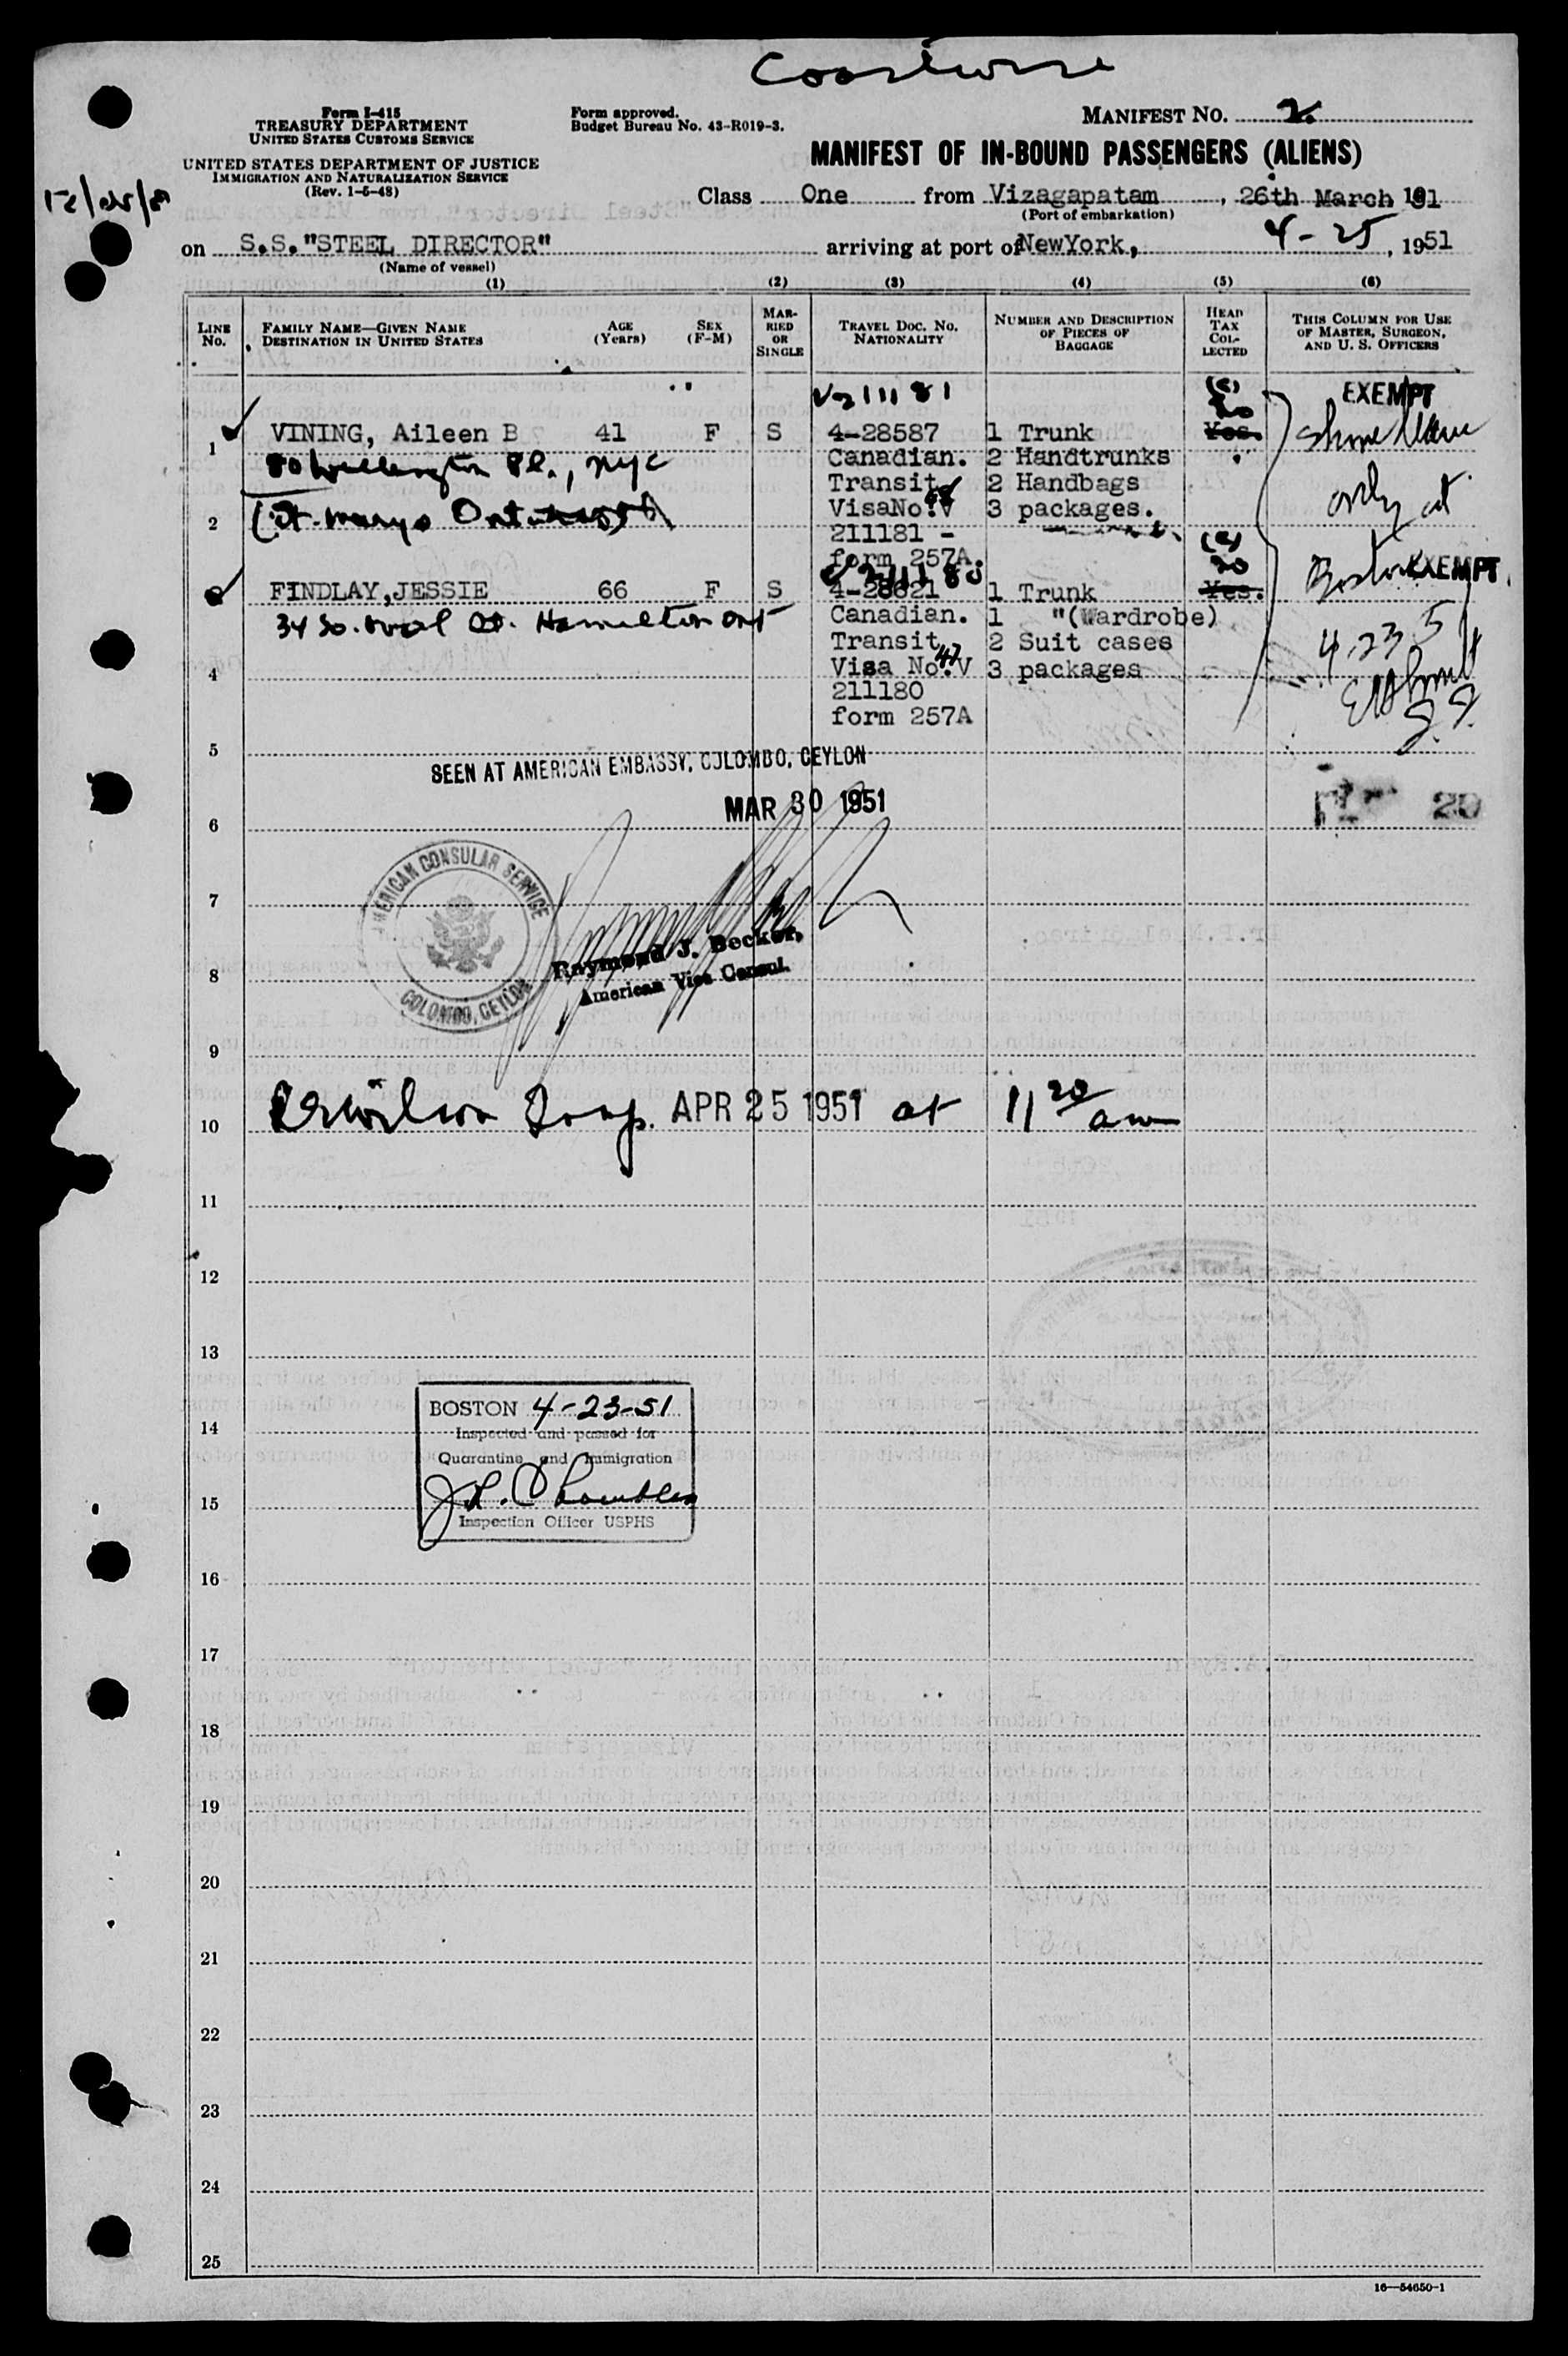 Coastwise
Form I-415
TREASURY DEPARTMENT
UNITED STATES CUSTOMS SERVICE
Form approved.
Budget Bureau No. 43-R019-3.
MANIFEST NO. 2
UNITED STATES DEPARTMENT OF JUSTICE
IMMIGRATION AND NATURALIZATION SERVICE
(Rev. 1-5-48)
MANIFEST OF IN-BOUND PASSENGERS (ALIENS)
Class One from Vizagapatam, 26th March 1951
(Port of embarkation)
on S.S."STEEL DIRECTOR" arriving at port of NewYork, 4-25, 1951
(Name of vessel)
(1) (2) (3) (4) (5) (6)
LINE No.
FAMILY NAME—GIVEN NAME
DESTINATION IN UNITED STATES
AGE (Years)
SEX (F-M)
MARRIED OR SINGLE
TRAVEL DOC. NO.
NATIONALITY
NUMBER AND DESCRIPTION OF PIECES OF BAGGAGE
HEAD TAX COLLECTED
THIS COLUMN FOR USE OF MASTER, SURGEON, AND U. S. OFFICERS
V211181
EXEMPT
1 VINING, Aileen B 41 F S 4-28587 1 Trunk Yes.
80 Wellington Pl., NYC Canadian. 2 Handtrunks
Transit 2 Handbags
2 VisaNo.V 3 packages.
211181 -
form 257A.
Shore leave
only at
Boston
4-23-51
EXEMPT
V211180
3 FINDLAY,JESSIE 66 F S 4-28621 1 Trunk Yes.
34 So. Oval St. Hamilton Ont Canadian. 1 "(Wardrobe)
Transit 2 Suit cases
4 Visa No.V 3 packages
211180
form 257A
5
SEEN AT AMERICAN EMBASSY, COLOMBO, CEYLON
MAR 30 1951
6
AMERICAN CONSULAR SERVICE
COLOMBO, CEYLON
7
Raymond J. Becker,
8
American Vice Consul.
9
Wilson Insp. APR 25 1951 at 11 20 am
10
11
12
13
BOSTON 4-23-51
14
Inspected and passed for
Quarantine and Immigration
15
Inspection Officer USPHS
16
17
18
19
20
21
22
23
24
25
16—54650-1